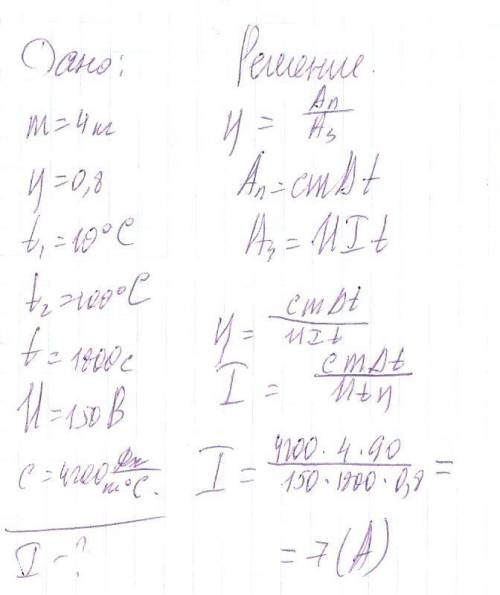 Дано:
m = 4 кг
η = 0,8
t₁ = 10°C
t₂ = 100°C
t = 1800c
U = 150 В
c = 4200 Дж/m°C.
I - ?
Решение.
η = Aп/Aз
Aп = cmΔt
Aз = UIt
η = cmΔt/UIt
I = cmΔt/Utη
I = 4200·4·90/150·1800·0,8 =
= 7 (A)